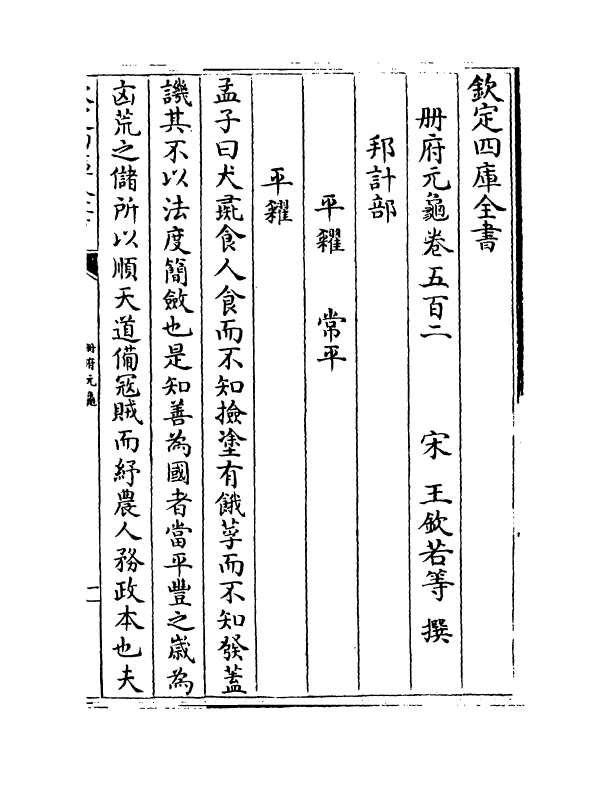 欽定四庫全書
册府元龜卷五百二 宋 王欽若等 撰
邦計部
平糴 常平
平糴
孟子曰犬彘食人食而不知撿塗有餓莩而不知發蓋
譏其不以法度簡斂也是知善為國者當平豐之歲為
凶荒之儲所以順天道備冦賊而紓農人務政本也夫
册府元龜